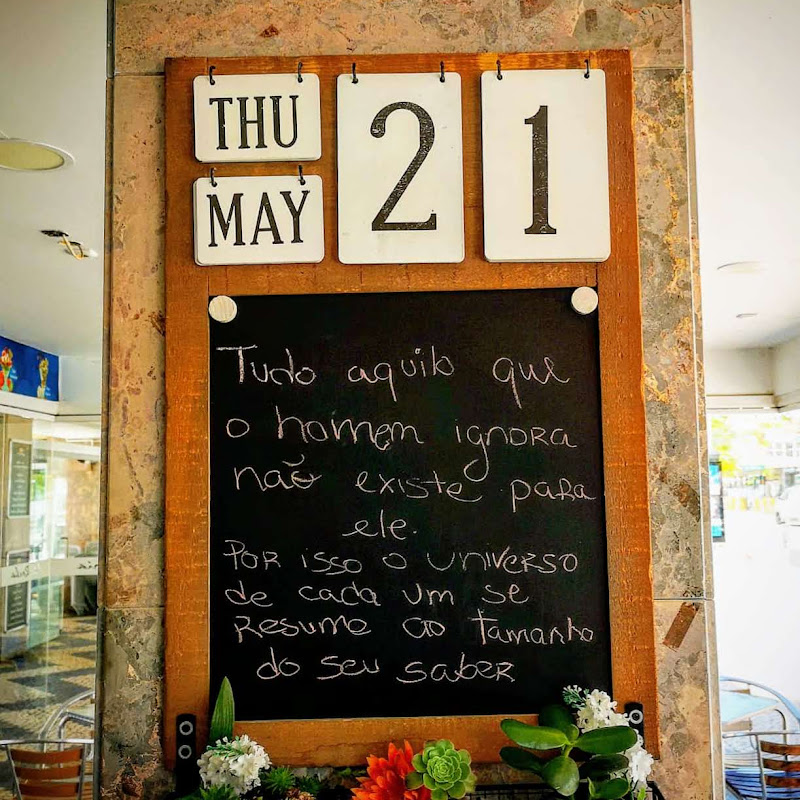 THU
MAY
21
Tudo aquilo que
o homem ignora
não existe para
ele.
Por isso o universo
de cada um se
resume ao tamanho
do seu saber